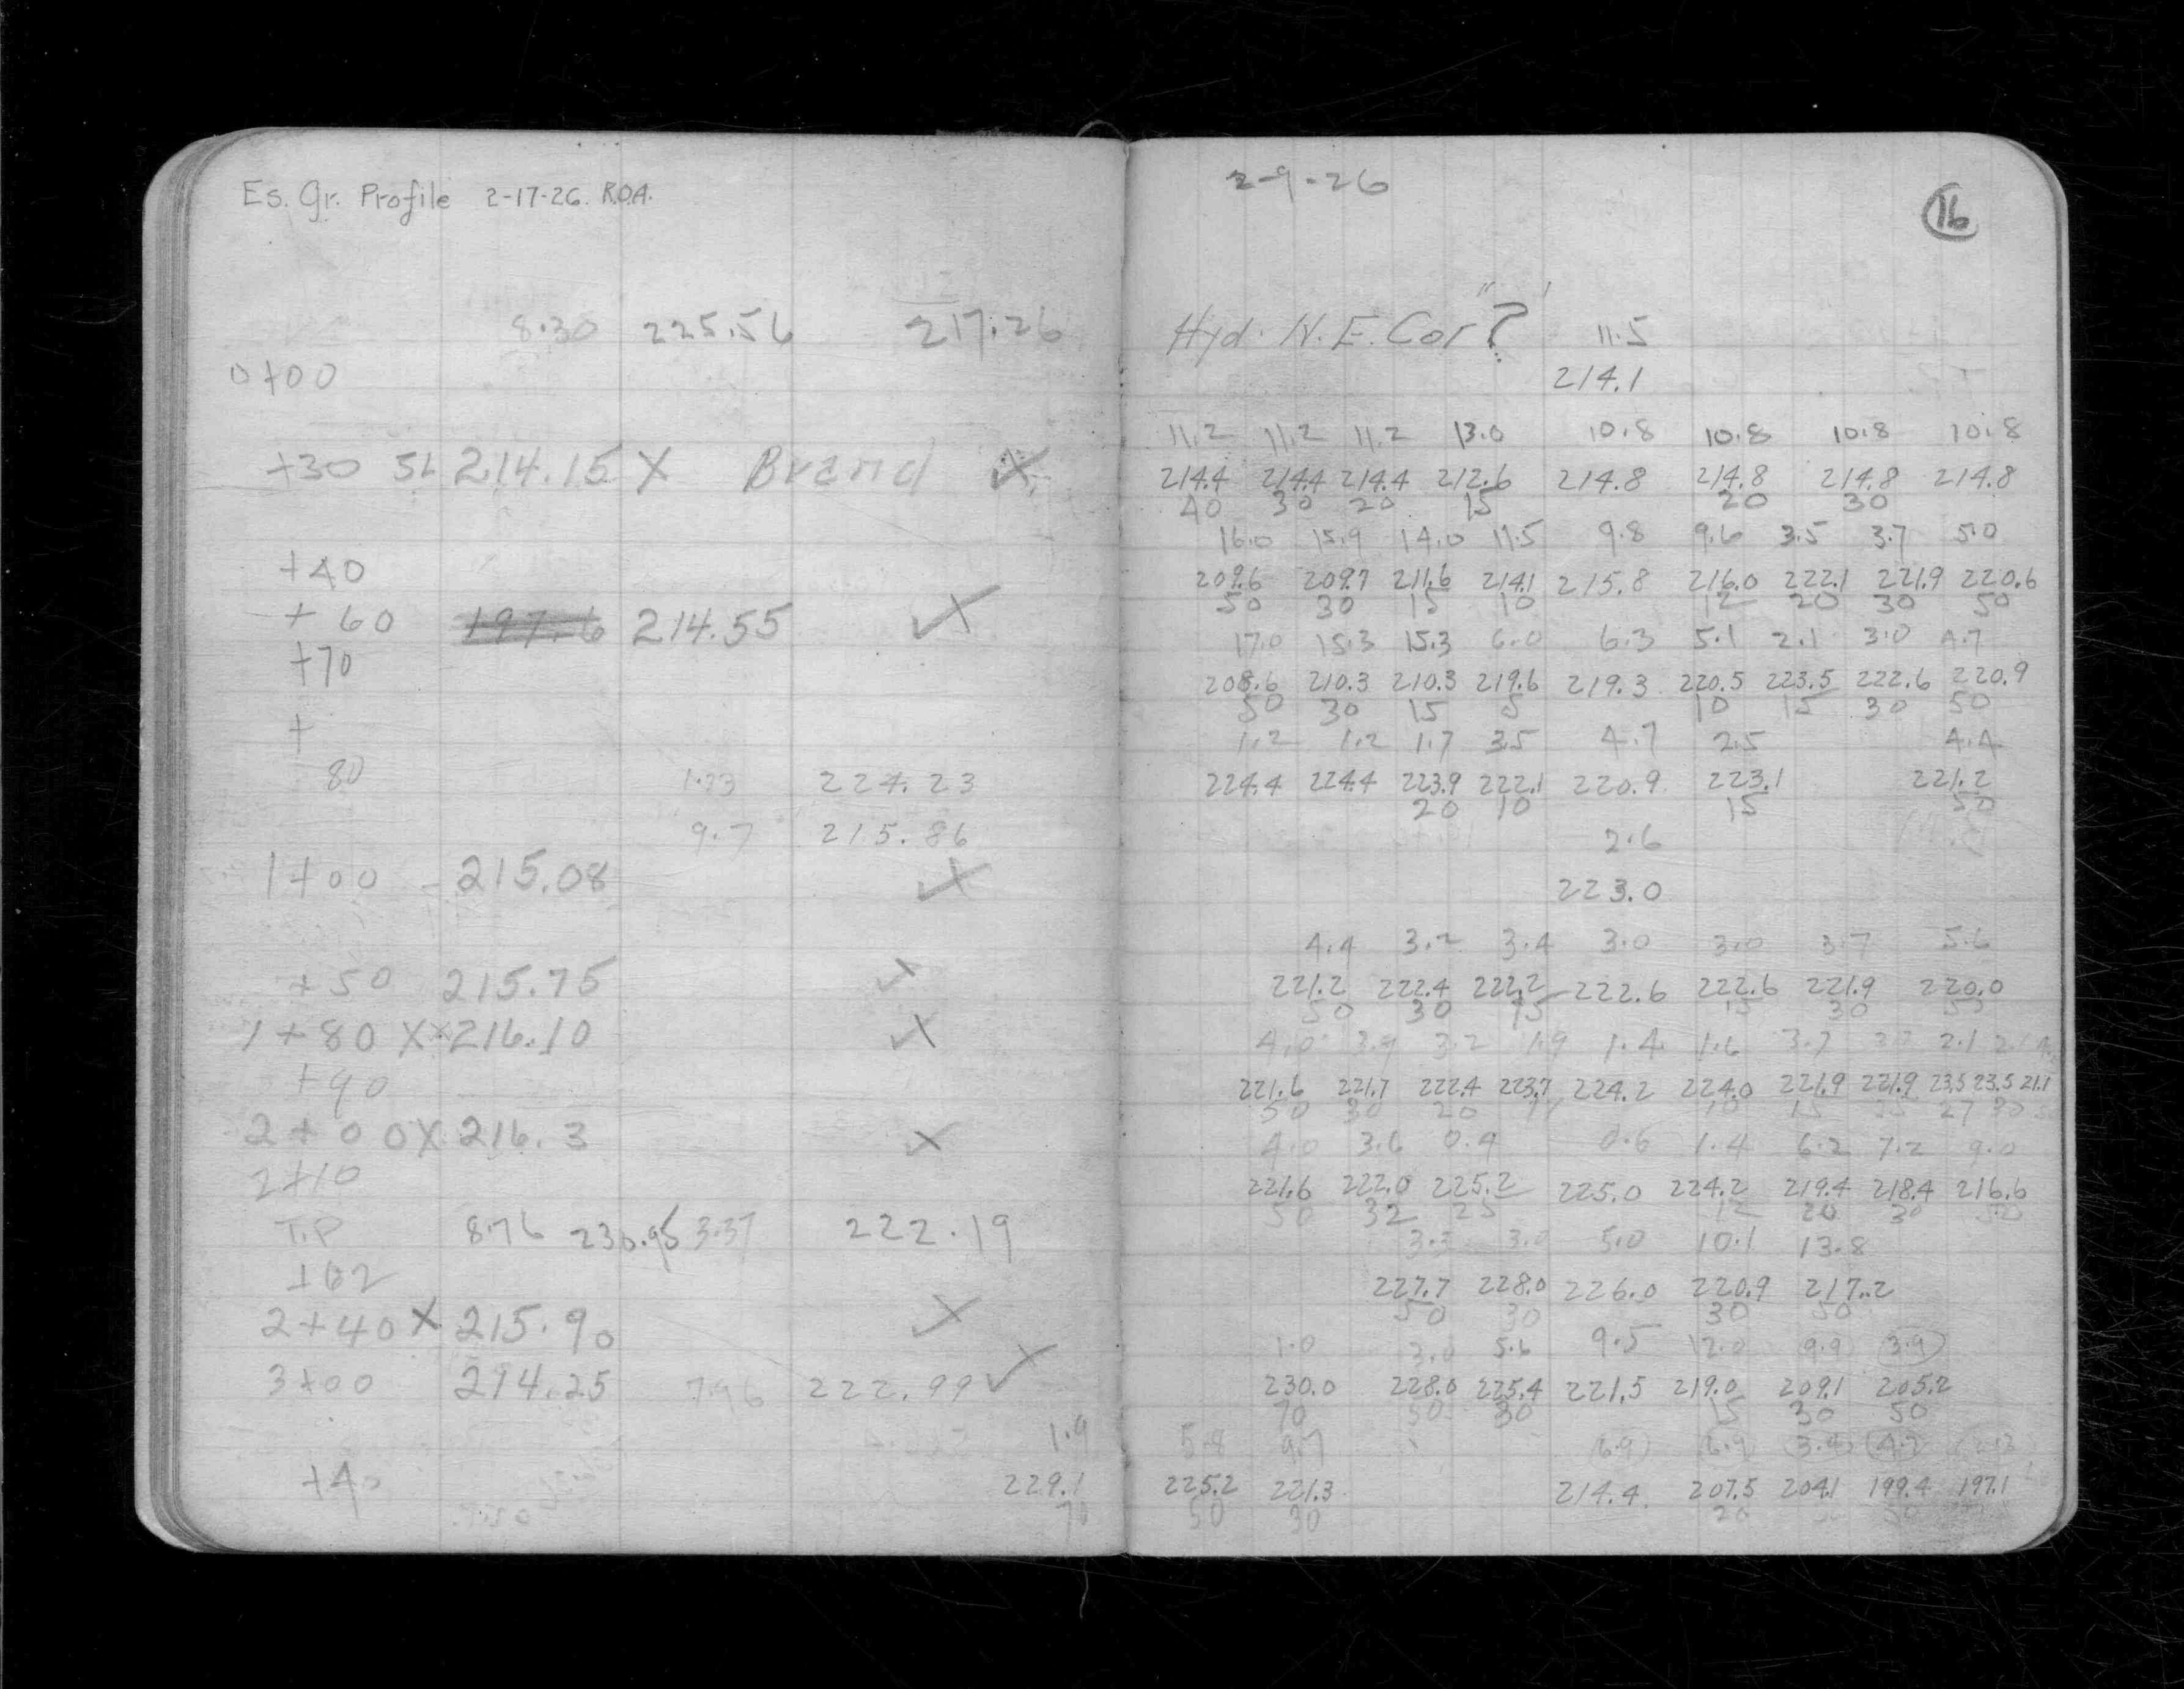 Es. Gr. Profile 2-17-26. R.O.A.
8.30 225.56 217.26
0+00
+30 St 214.15 X Brand
+40
+60 197.6 214.55
+70
+
80 1.33 224.23
9.7 215.86
1+00 215.08
+50 215.75
1+80 X 216.10
+90
2+00 X 216.3
2+10
T.P 8.76 230.95 3.37 222.19
+62
2+40 X 215.90
3+00 214.25 7.96 222.99
1.9
+40 229.1
70
2-9-26
16
Hyd. N.E. Cor "?" 11.5
214.1
11.2 11.2 11.2 13.0 10.8 10.8 10.8 10.8
214.4 214.4 214.4 212.6 214.8 214.8 214.8 214.8
40 30 20 15 20 30
16.0 15.9 14.0 11.5 9.8 9.6 3.5 3.7 5.0
209.6 209.7 211.6 214.1 215.8 216.0 222.1 221.9 220.6
50 30 15 10 12 20 30 50
17.0 15.3 15.3 6.0 6.3 5.1 2.1 3.0 4.7
208.6 210.3 210.3 219.6 219.3 220.5 223.5 222.6 220.9
50 30 15 5 10 15 30 50
1.2 1.2 1.7 3.5 4.7 2.5 4.4
224.4 224.4 223.9 222.1 220.9 223.1 221.2
20 10 15 50
2.6
223.0
4.4 3.2 3.4 3.0 3.0 3.7 5.6
221.2 222.4 222.2 222.6 222.6 221.9 220.0
50 30 15 15 30 50
4.0 3.9 3.2 1.9 1.4 1.6 3.7 2.1
221.6 221.7 222.4 223.7 224.2 224.0 221.9 221.9 23.5 23.5 21.1
50 30 20 10 15 27 30
4.0 3.6 0.4 0.6 1.4 6.2 7.2 9.0
221.6 222.0 225.2 225.0 224.2 219.4 218.4 216.6
50 32 25 12 20 30 50
3.3 3.0 5.0 10.1 13.8
227.7 228.0 226.0 220.9 217.2
50 30 30 50
1.0 3.0 5.6 9.5 12.0 9.9 3.9
230.0 228.0 225.4 221.5 219.0 209.1 205.2
70 50 30 15 30 50
5.8 9.7 6.9 6.9 3.4 4.7
225.2 221.3 214.4 207.5 204.1 199.4 197.1
50 30 20